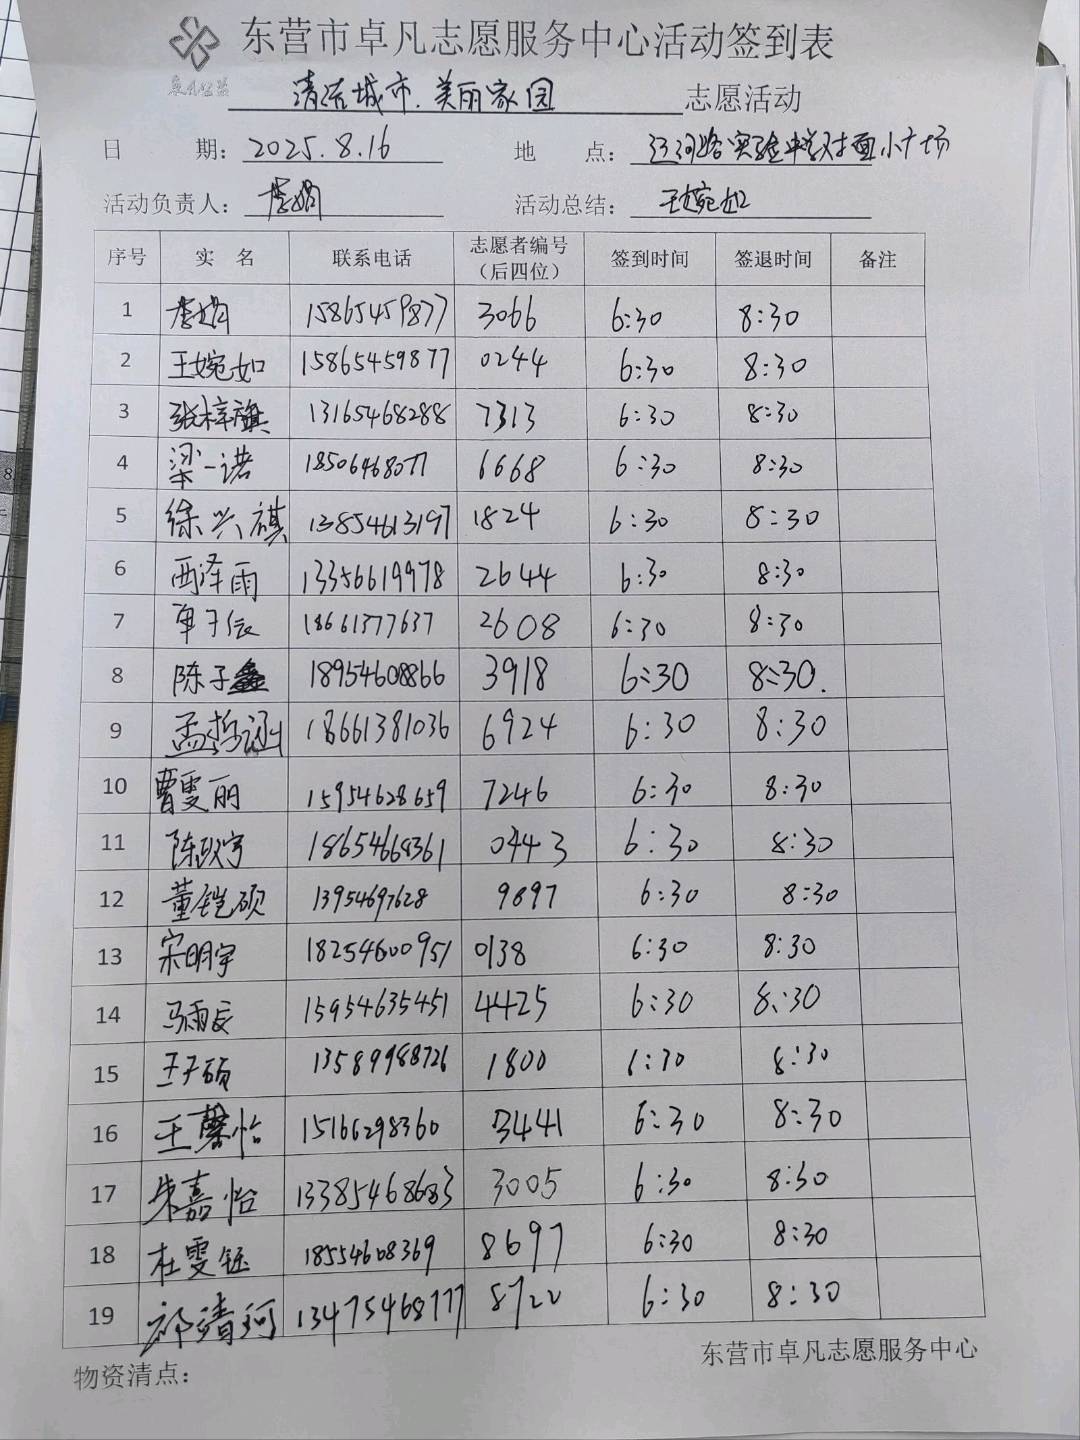 东营市卓凡志愿服务中心活动签到表
卓凡公益
清洁城市.美丽家园 志愿活动
日 期: 2025.8.16 地 点: 实验中学对面小广场
活动负责人: 李娟 活动总结: 王婉如
序号 实 名 联系电话 志愿者编号(后四位) 签到时间 签退时间 备注
1 李娟 15865459877 3066 6:30 8:30
2 王婉如 15865459877 0244 6:30 8:30
3 张梓旗 13165468288 7313 6:30 8:30
4 梁一诺 18506468077 6668 6:30 8:30
5 徐兴祺 13854613197 1824 6:30 8:30
6 西泽雨 13356619978 2644 6:30 8:30
7 单子辰 18661377637 2608 6:30 8:30
8 陈子鑫 18954608866 3918 6:30 8:30.
9 孟哲涵 18661381036 6924 6:30 8:30
10 曹雯丽 15954628659 7246 6:30 8:30
11 陈政宇 18654668361 0443 6:30 8:30
12 董铠硕 13954697628 9897 6:30 8:30
13 宋明宇 18254600951 0138 6:30 8:30
14 马雨辰 15954635451 4425 6:30 8:30
15 王子硕 13589988726 1800 6:30 8:30
16 王馨怡 15166298360 3441 6:30 8:30
17 朱嘉怡 13385468683 3005 6:30 8:30
18 杜雯钰 18554608369 8697 6:30 8:30
19 祁清河 13475468777 8722 6:30 8:30
东营市卓凡志愿服务中心
物资清点: